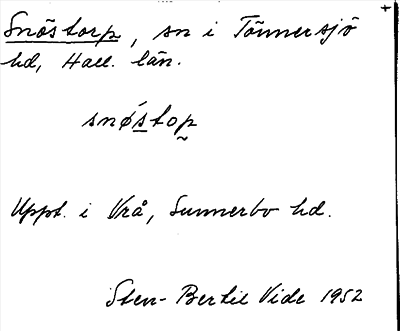 Snöstorp, sn i Tönnersjö
hd, Hall. län.
snø´stop
Uppt. i Vrå, Sunnerbo hd.
Sten-Bertil Vide 1952